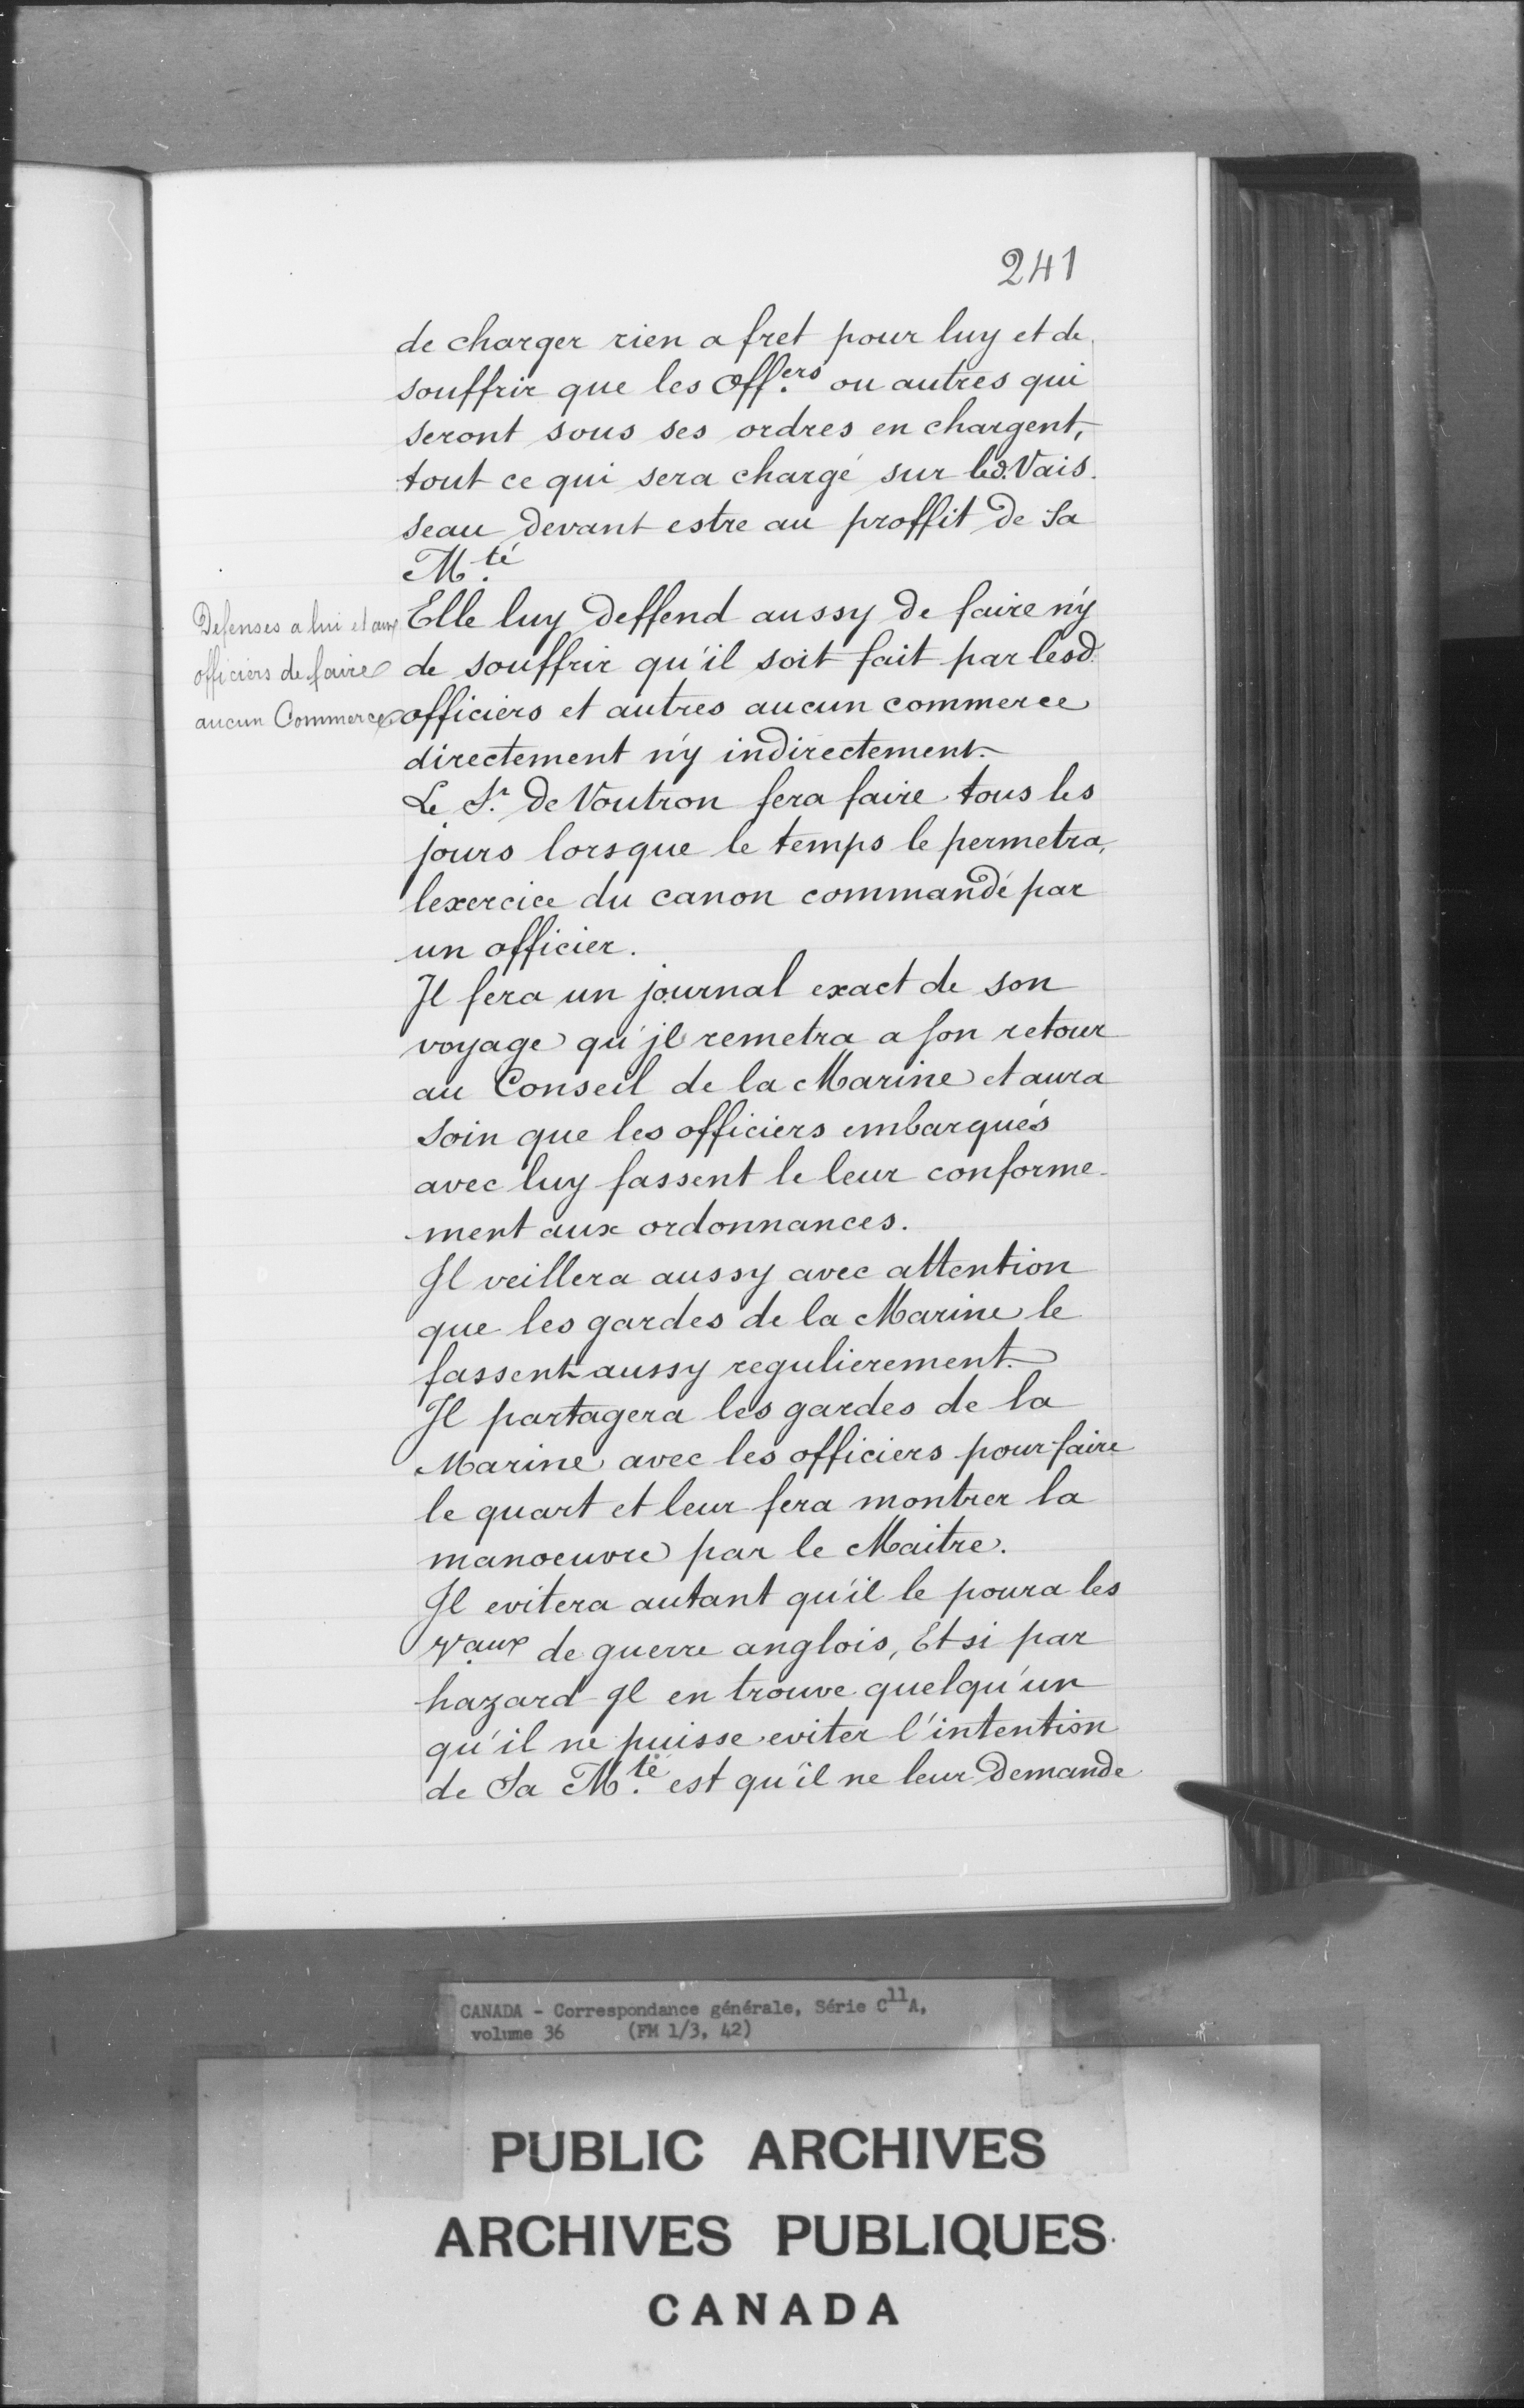 241
de charger rien a fret pour luy et de
souffrir que les Off.ers ou autres qui
seront sous ses ordres en chargent,
tout ce qui sera chargé sur led. Vais.
seau devant estre au proffit de Sa
M.té
Defenses a lui et aux
officiers de faire
aucun Commerce
Elle luy deffend aussy de faire n'y
de souffrir qu'il soit fait par lesd.
officiers et autres aucun commerce
directement n'y indirectement.
Le S.r de Voutron fera faire tous les
jours lorsque le temps le permetra,
lexercice du canon commandé par
un officier.
Il fera un journal exact de son
voyage qu'jl remetra a son retour
au Conseil de la Marine et aura
soin que les officiers embarqués
avec luy fassent le leur conforme-
ment aux ordonnances.
Il veillera aussy avec attention
que les gardes de la Marine le
fassent aussy regulierement.
Il partagera les gardes de la
Marine avec les officiers pour faire
le quart et leur fera montrer la
manoeuvre par le Maitre.
Il evitera autant qu'il le poura les
V.aux de guerre anglois, Et si par
hazard Il en trouve quelqu'un
qu'il ne puisse eviter l'intention
de Sa M.té est qu'il ne leur demande
CANADA - Correspondance générale, Série C11A,
volume 36 (FM 1/3, 42)
PUBLIC ARCHIVES
ARCHIVES PUBLIQUES
CANADA